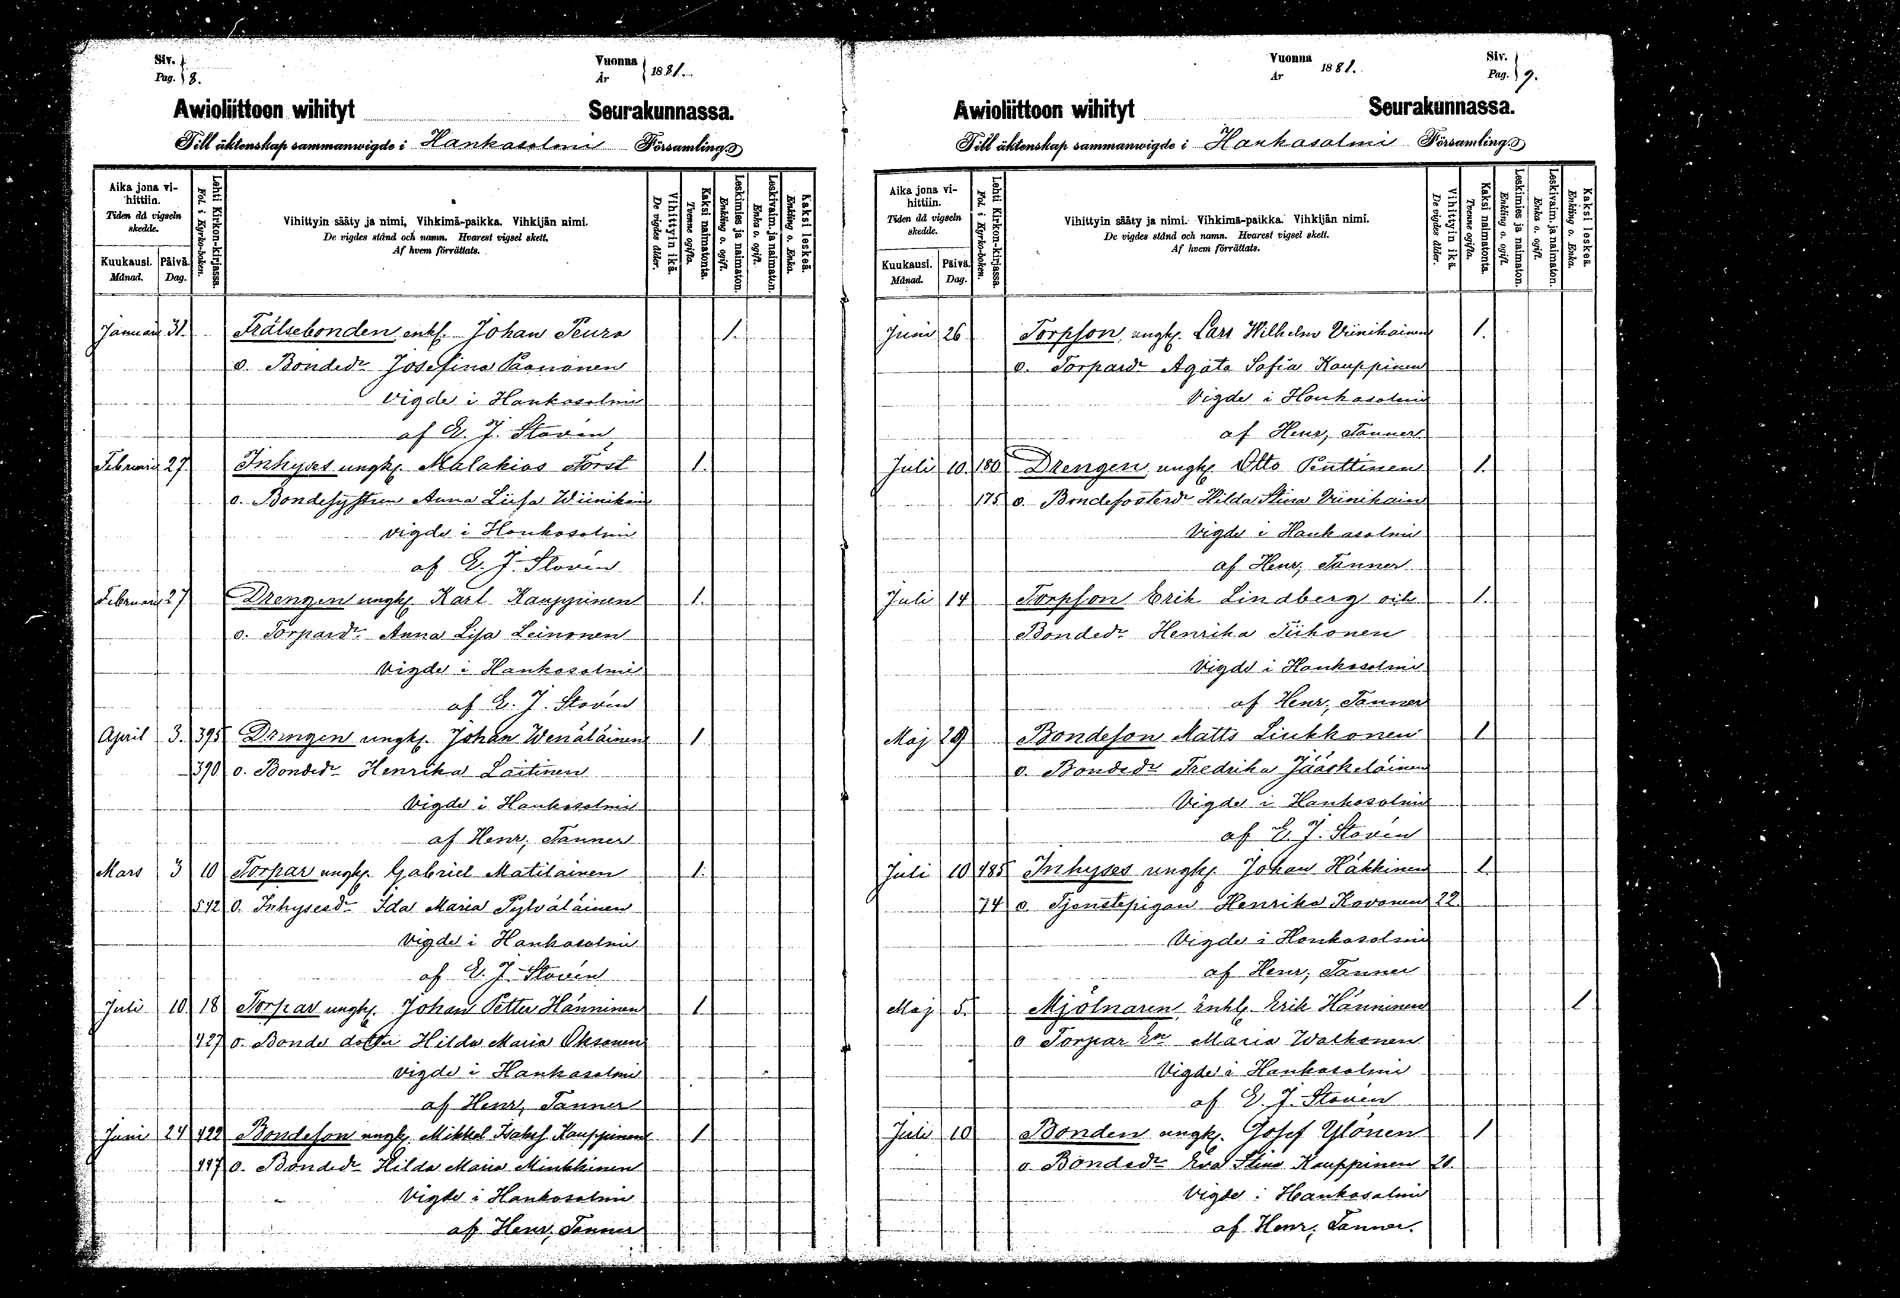 Siv.
Pag. 8.
Vuonna
År 1881.
Awioliittoon wihityt Seurakunnassa.
Till äktenskap sammanwigde i Hankasalmi Församling
Aika jona vihittiin.
Tiden då vigseln skedde.
Kuukausi.
Månad.
Päivä.
Dag.
Lehti Kirkon-kirjassa.
Fol. i Kyrko-boken.
Vihittyin sääty ja nimi, Vihkimä-paikka. Vihkijän nimi.
De vigdes stånd och namn. Hvarest vigsel skett.
Af hvem förrättats.
Vihittyin ikä.
De vigdes ålder.
Kaksi naimatonta.
Tvenne ogifta.
Leskimies ja naimaton.
Enkling o. ogift.
Leskivaim. ja naimaton.
Enka o. ogift.
Kaksi leskeä.
Enkling o. Enka.
Januari 31. Frälsebonden enkl. Johan Peura 1.
o. Bondedr Josefina Paananen
vigde i Hankasalmi
af E. J. Stovén
Februari 27. Inhyses ungk. Malakias Först 1.
o. Bondesystern Anna Liisa Wiinikain
vigde i Hankasalmi
af E. J. Stovén
Februari 27 Drengen ungk. Karl Kauppinen 1.
o. Torpardr Anna Lisa Leinonen
Vigde i Hankasalmi
af E. J. Stovén
April 3. 395 Drengen ungk. Johan Wenäläinen 1
390 o. Bondedr Henrika Laitinen
Vigde i Hankasalmi
af Henr, Tanner
Mars 3 10 Torpar ungk. Gabriel Matilainen 1.
542 o. Inhysesdr Ida Maria Pylväläinen
Vigde i Hankasalmi
af E. J. Stovén
Juli 10. 18 Torpar ungk. Johan Petter Hänninen 1
427 o. Bonde dotter Hilda Maria Oksanen
vigde i Hankasalmi
af Henr, Tanner
Juni 24 422 Bondeson ungk. Mikkel Isaksf Kauppinen 1
447 o. Bondedr Hilda Maria Minkkinen
Vigde i Hankasalmi
af Henr, Tanner
Vuonna
År 1881.
Siv.
Pag. 9.
Awioliittoon wihityt Seurakunnassa.
Till äktenskap sammanwigde i Hankasalmi Församling
Aika jona vihittiin.
Tiden då vigseln skedde.
Kuukausi.
Månad.
Päivä.
Dag.
Lehti Kirkon-kirjassa.
Fol. i Kyrko-boken.
Vihittyin sääty ja nimi. Vihkimä-paikka. Vihkijän nimi.
De vigdes stånd och namn. Hvarest vigsel skett.
Af hvem förrättats.
Vihittyin ikä.
De vigdes ålder.
Kaksi naimatonta.
Tvenne ogifta.
Leskimies ja naimaton.
Enkling o. ogift.
Leskivaim. ja naimaton.
Enka o. ogift.
Kaksi leskeä.
Enkling o. Enka.
Juni 26 Torpson ungk. Lars Wilhelm Viinikainen 1.
o. Torpardr Agata Sofia Kauppinen
Vigde i Hankasalmi
af Henr, Tanner
Juli 10. 180 Drengen ungk Otto Penttinen 1.
175 o. Bondefosterdr Hilda Stina Viinikain
Vigde i Hankasalmi
af Henr, Tanner
Juli 14 Torpson Erik Lindberg och 1.
Bondedr Henrika Tiihonen
Vigde i Hankasalmi
af Henr, Tanner
Maj 29 Bondeson Matts Liukkonen 1
o. Bondedr Fredrika Jääskeläinen
Vigde i Hankasalmi
af E. J. Stovén
Juli 10 485 Inhyses ungk. Johan Häkkinen 1
74 o. Tjenstepigan Henrika Kovanen 22.
Vigde i Hankasalmi
af Henr, Tanner
Maj 5. Mjölnaren, Enkl. Erik Hänninen 1
o Torpar En Maria Walkonen
Vigde i Hankasalmi
af E. J. Stovén
Juli 10 Bonden ungk. Josef Ylönen 1
o Bondedr Eva Stina Kauppinen 21.
Vigde i Hankasalmi
af Henr, Tanner.